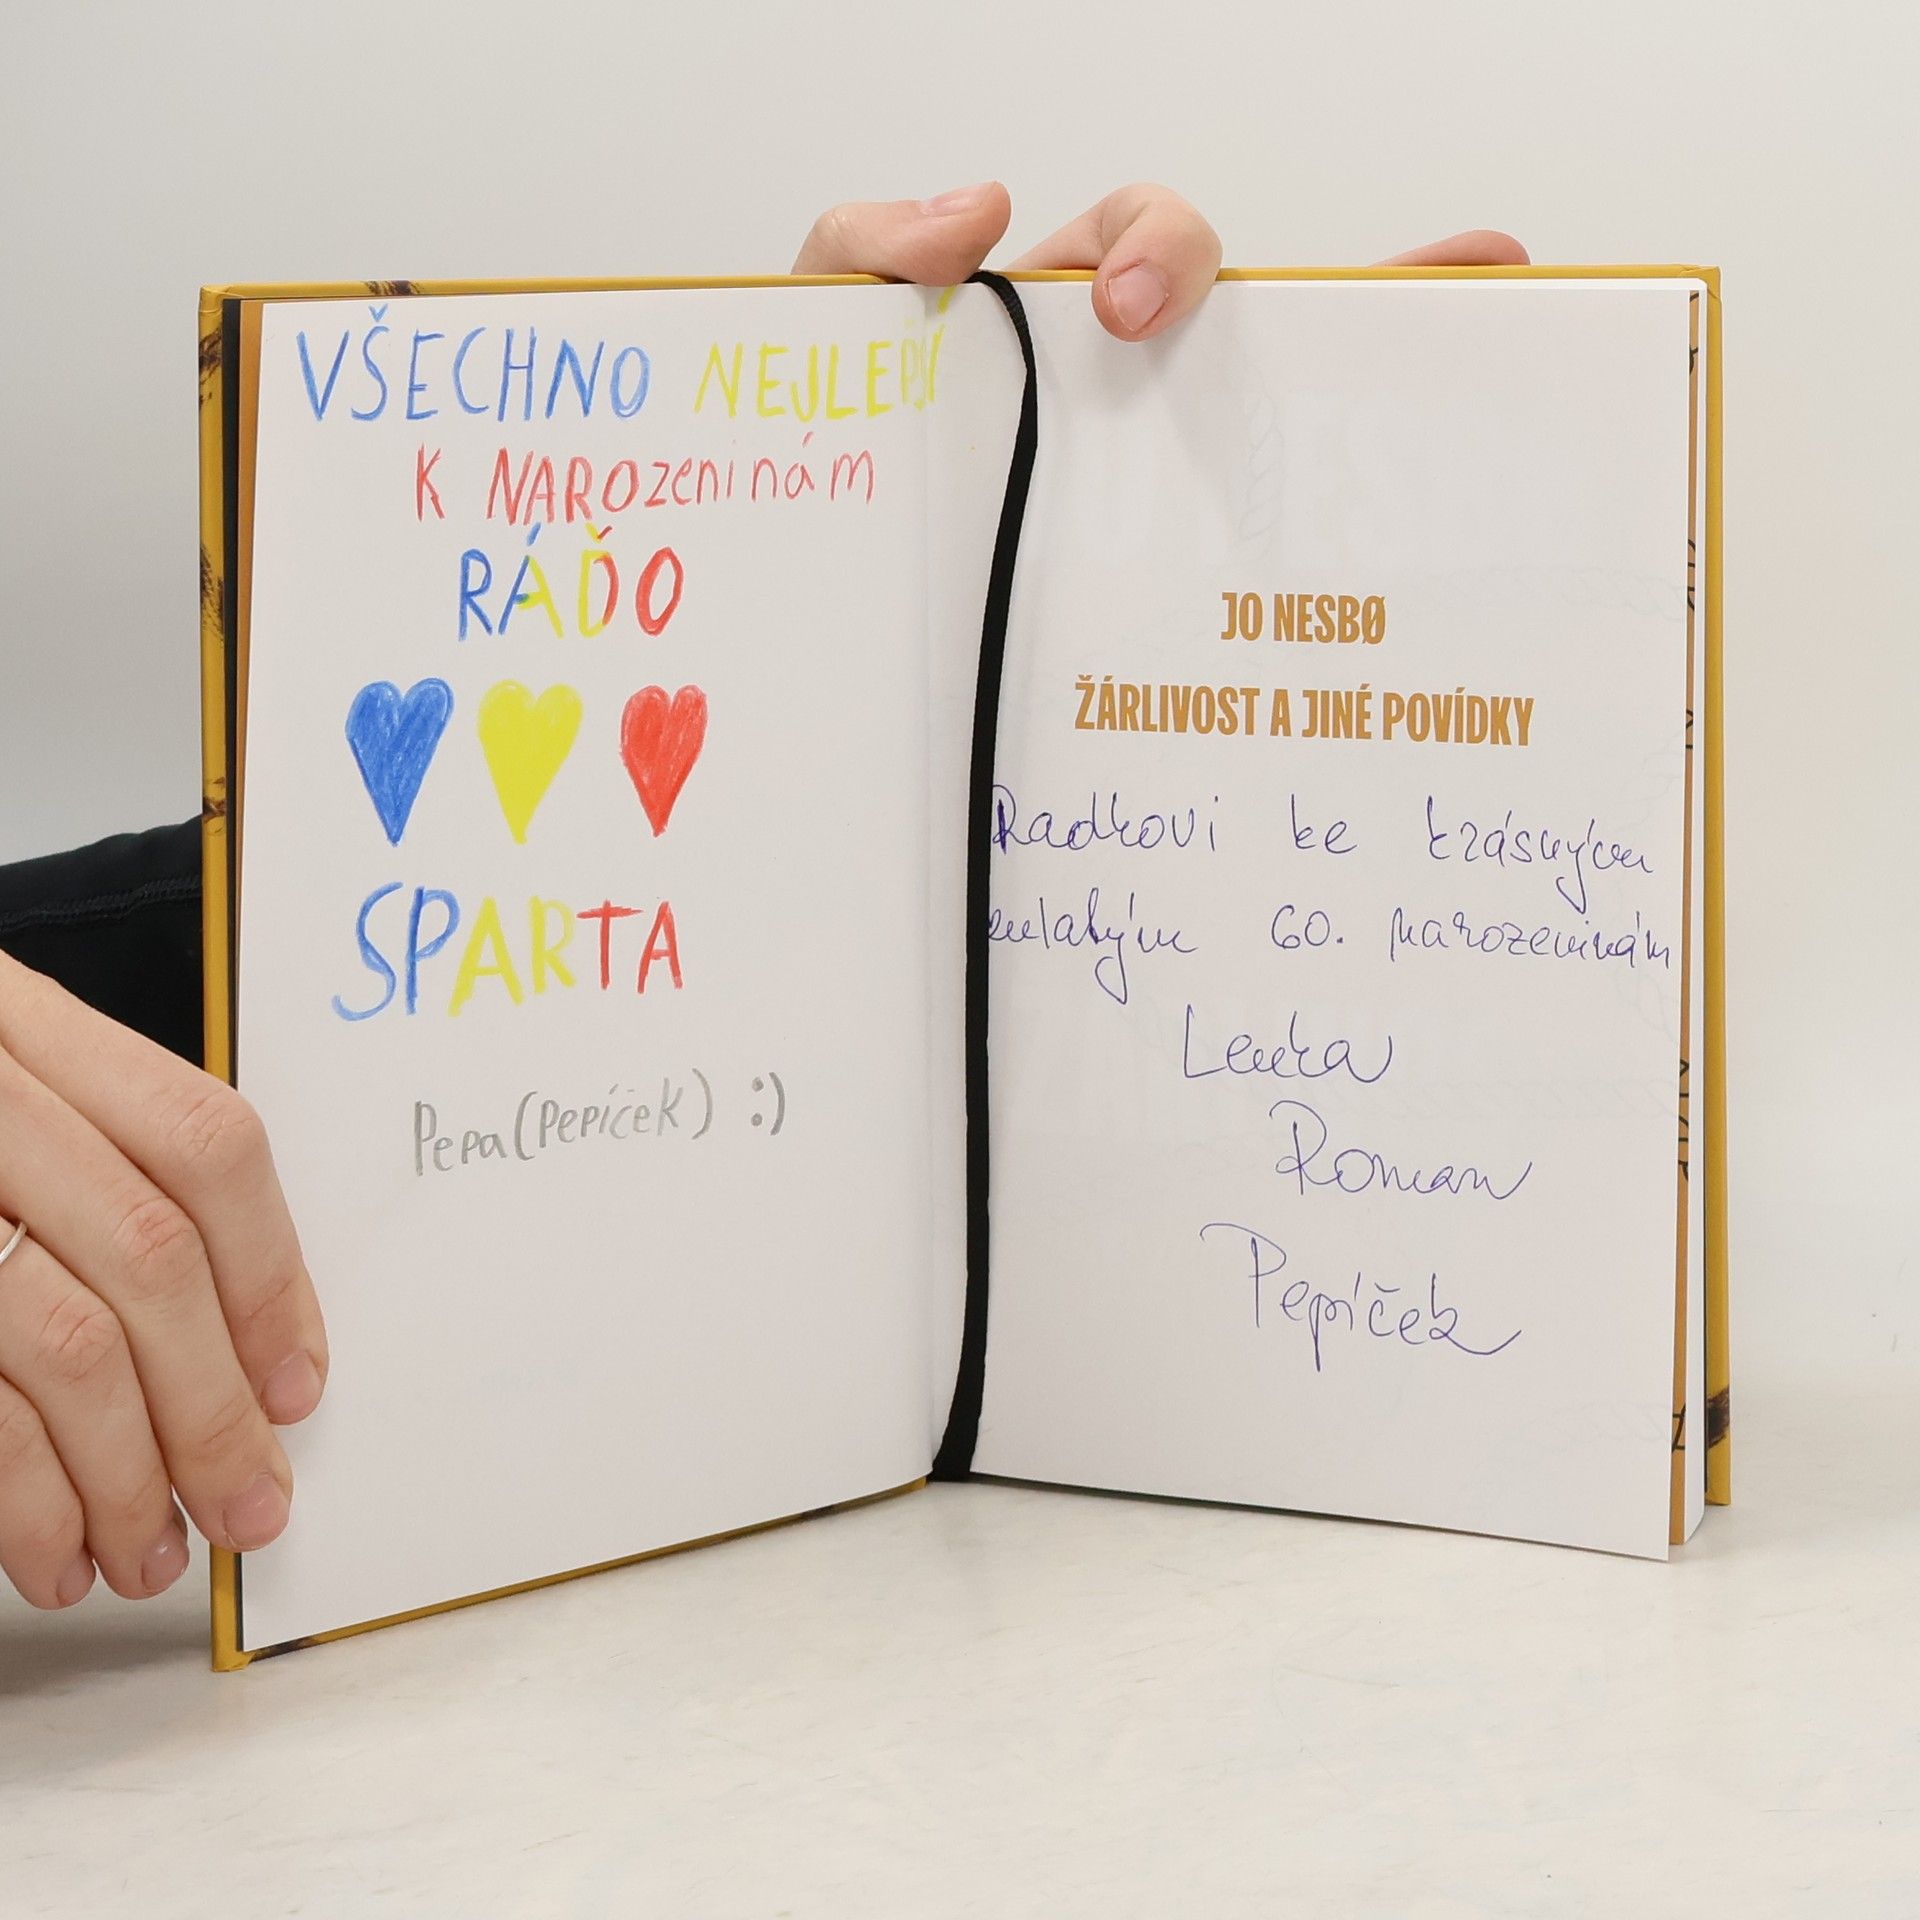 VŠECHNO NEJLEPŠÍ
K NAROZENINÁM
RÁĎO
SPARTA
Pepa (Pepíček) :)
JO NESBØ
ŽÁRLIVOST A JINÉ POVÍDKY
Radkovi ke krásným
mladým 60. narozeninám
Lenka
Roman
Pepíček